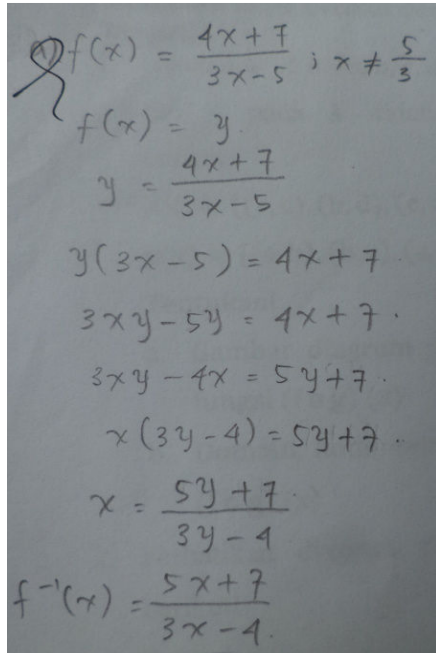 f(x) = \frac{4x+7}{3x-5} ; x ≠ \frac{5}{3}
f(x) = y
y = \frac{4x+7}{3x-5}
y(3x-5) = 4x+7.
3xy-5y = 4x+7.
3xy-4x = 5y+7.
x(3y-4) = 5y+7.
x = \frac{5y+7}{3y-4}
f^{-1}(x) = \frac{5x+7}{3x-4}